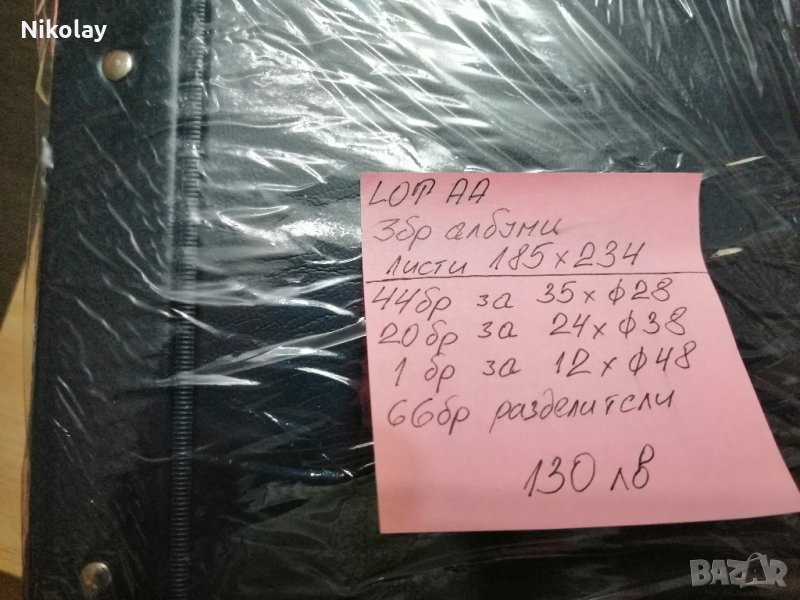 Nikolay
LOT AA
3бр албуми
листи 185x234
44бр за 35xф28
20бр за 24xф38
1 бр за 12xф48
66бр разделители
130 лв
BAZAR